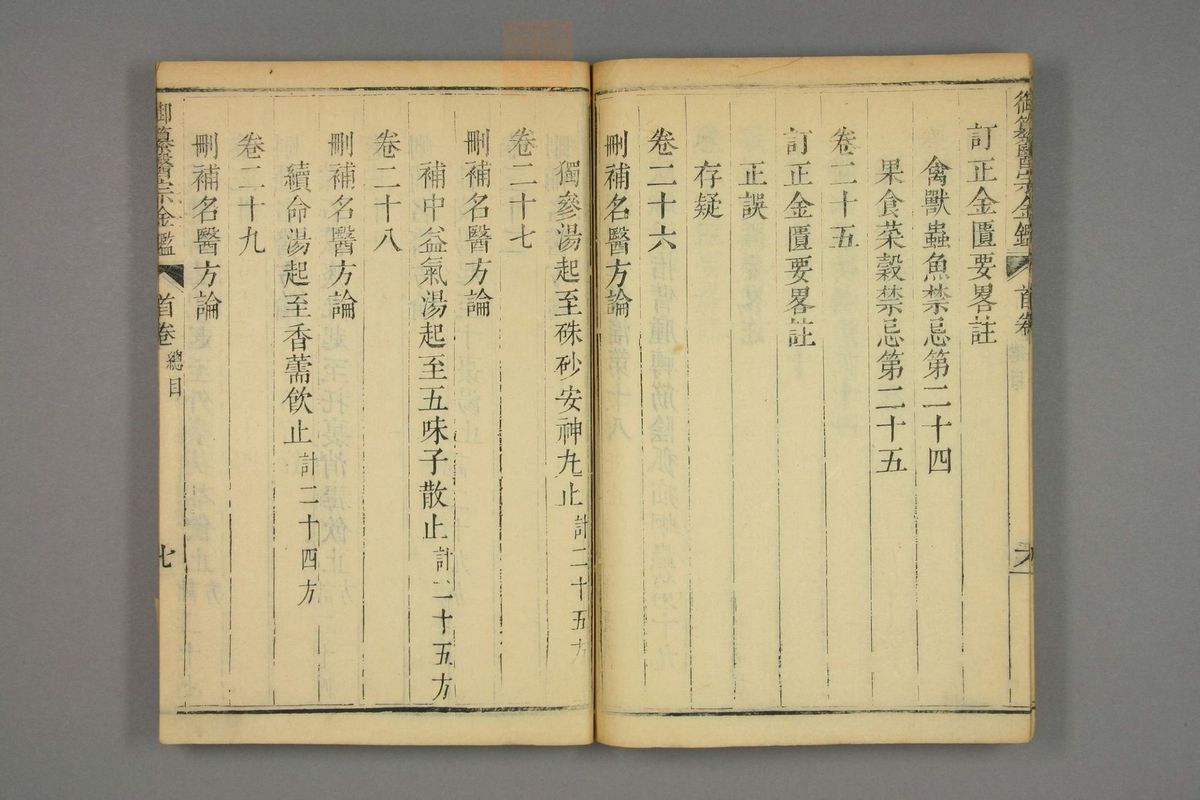 御纂醫宗金鑑 首卷
訂正金匱要畧註
禽獸蟲魚禁忌第二十四
果食菜穀禁忌第二十五
卷二十五
訂正金匱要畧註
正誤
存疑
卷二十六
刪補名醫方論
獨參湯起至硃砂安神丸止計二十五方
卷二十七
刪補名醫方論
補中益氣湯起至五味子散止計二十五方
卷二十八
刪補名醫方論
續命湯起至香薷飲止計二十四方
卷二十九
刪補名醫方論
御纂醫宗金鑑 首卷 總目 七